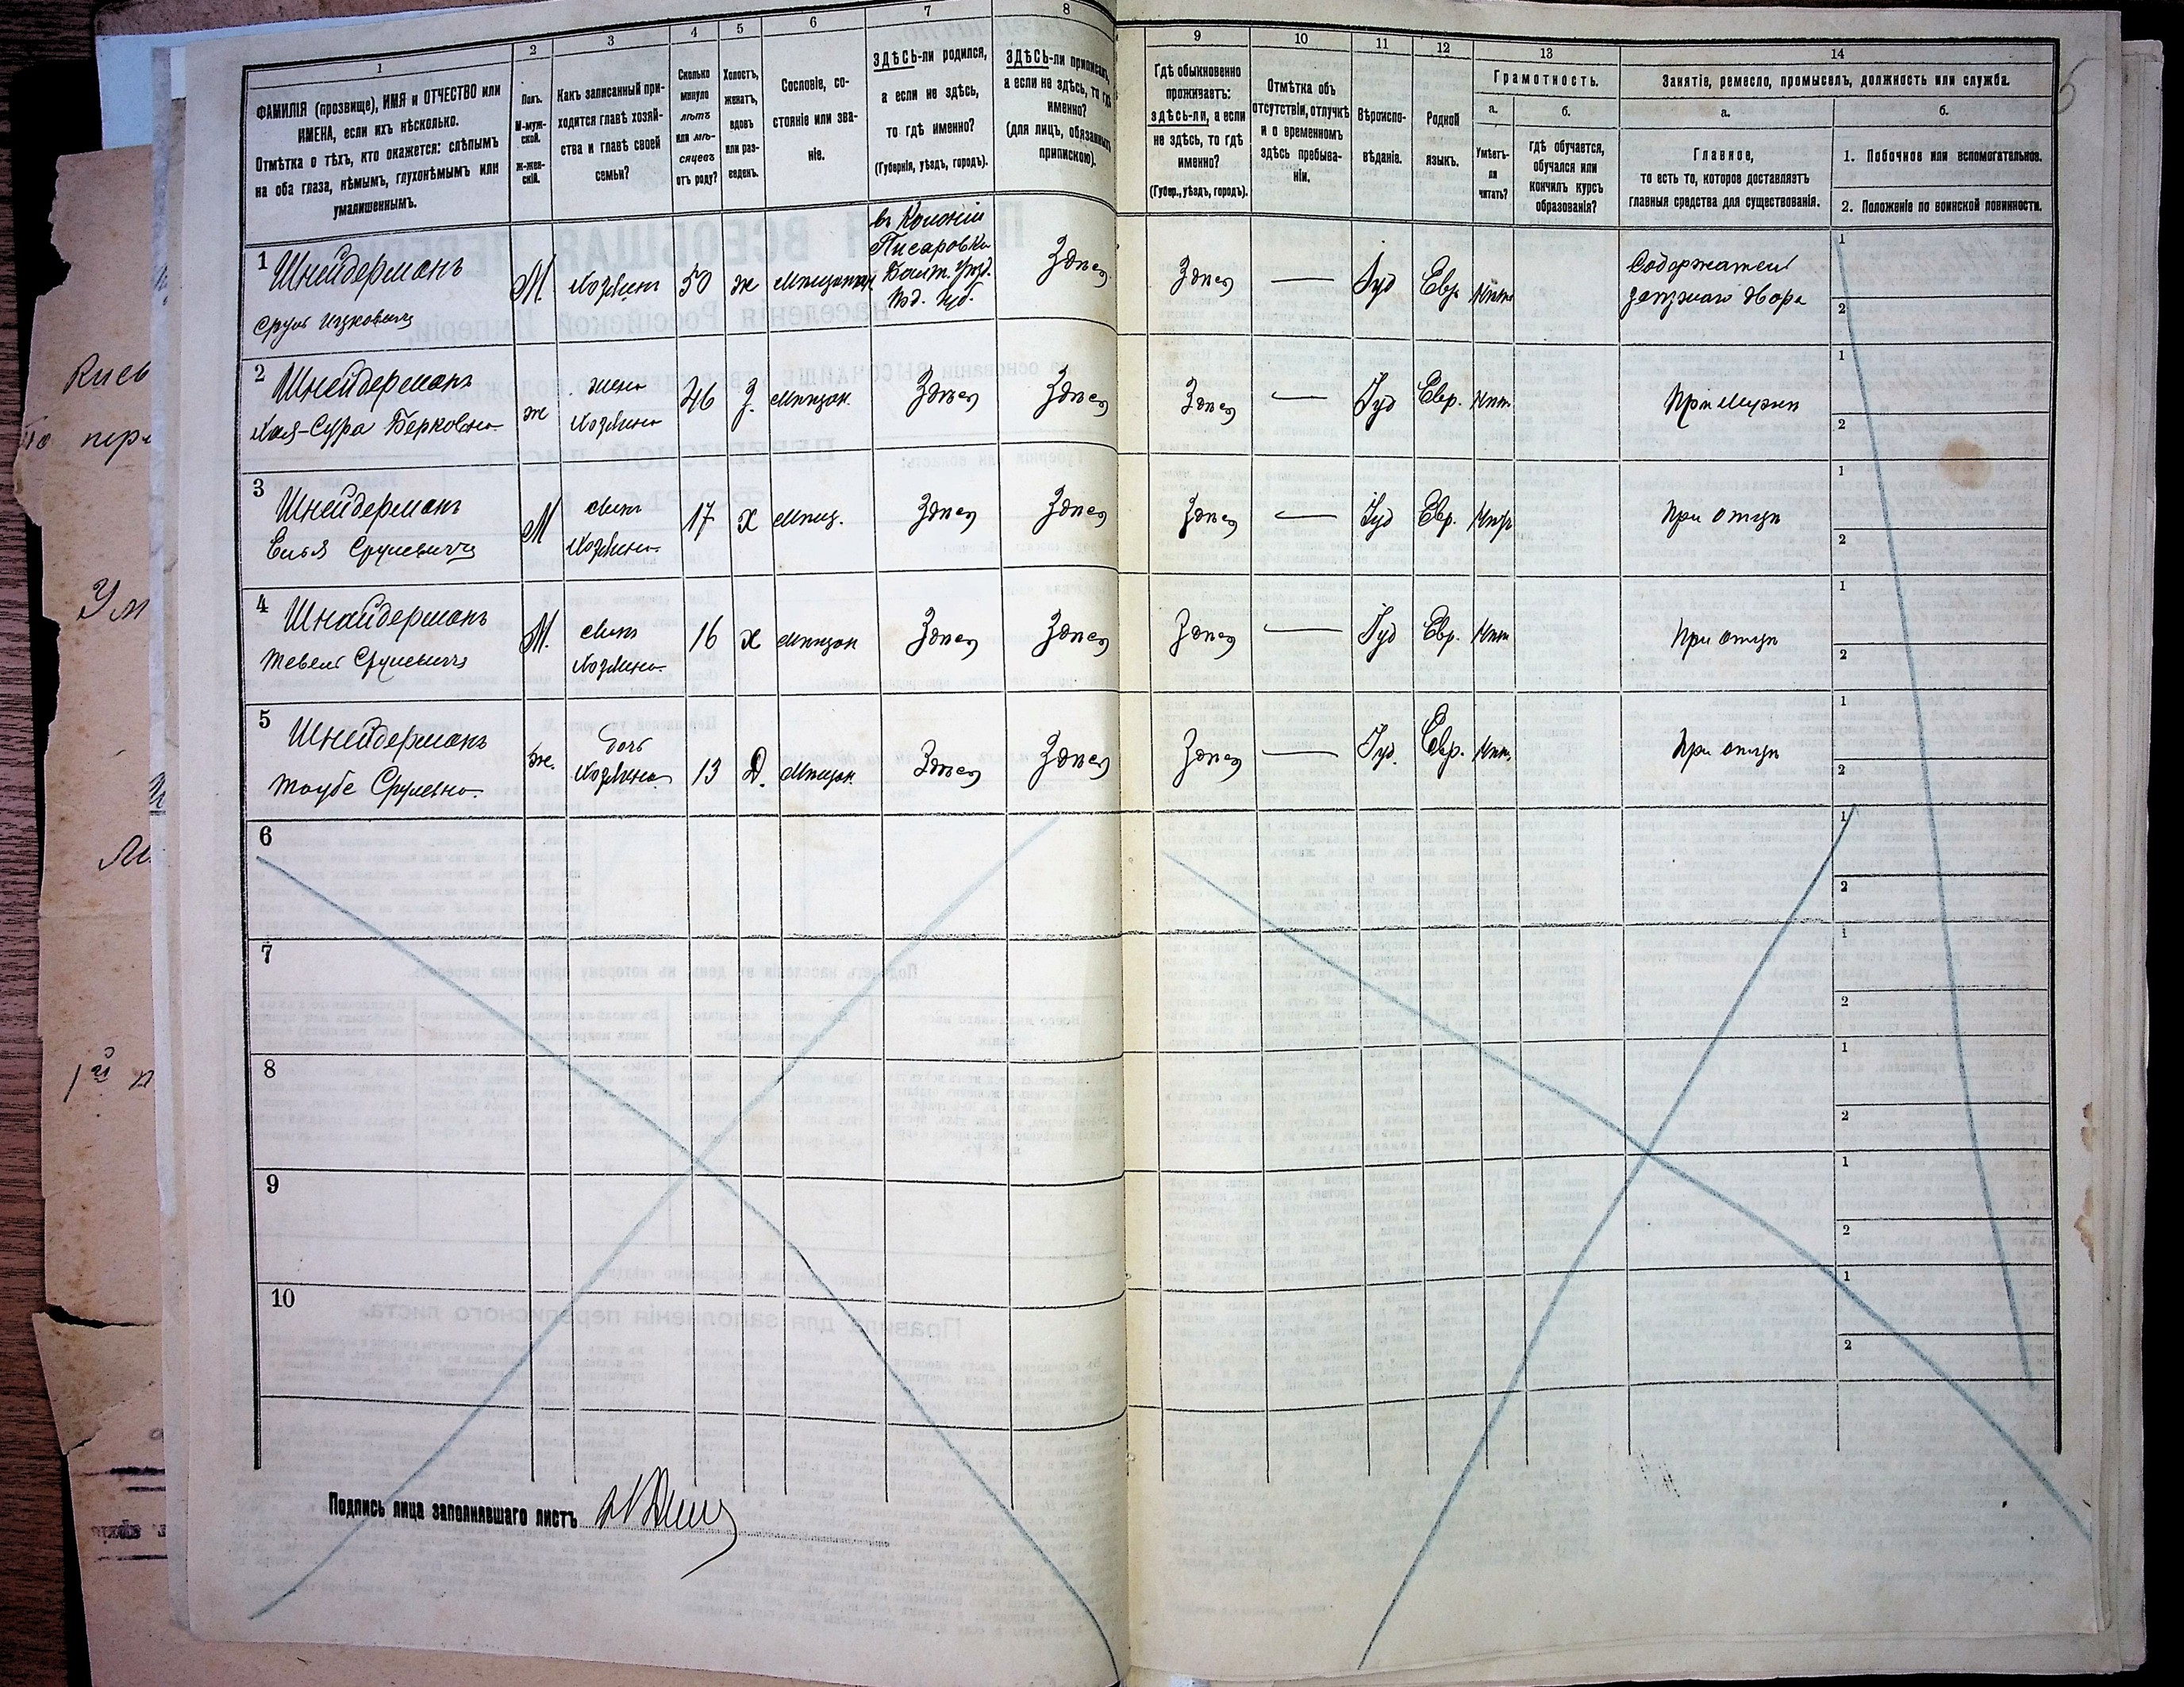 1
ФАМИЛІЯ (прозвище), ИМЯ и ОТЧЕСТВО или
ИМЕНА, если ихъ нѣсколько.
Отмѣтка о тѣхъ, кто окажется: слѣпымъ
на оба глаза, нѣмымъ, глухонѣмымъ или
умалишеннымъ.
2
Полъ.
М-муж-
ской.
Ж-жен-
скій.
3
Какъ записанный при-
ходится главѣ хозяй-
ства и главѣ своей
семьи?
4
Сколько
минуло
лѣтъ
или мѣ-
сяцевъ
отъ роду?
5
Холостъ,
женатъ,
вдовъ
или раз-
веденъ.
6
Сословіе, со-
стояніе или зва-
ніе.
7
ЗДѢСЬ-ли родился,
а если не здѣсь,
то гдѣ именно?
(Губернія, уѣздъ, городъ).
8
ЗДѢСЬ-ли приписанъ,
а если не здѣсь, то гдѣ
именно?
(для лицъ, обязанныхъ
припискою).
9
Гдѣ обыкновенно
проживаетъ:
здѣсь-ли, а если
не здѣсь, то гдѣ
именно?
(Губер., уѣздъ, городъ).
10
Отмѣтка объ
отсутствіи, отлучкѣ
и о временномъ
здѣсь пребыва-
ніи.
11
Вѣроиспо-
вѣданіе.
12
Родной
языкъ.
13
Грамотность.
а.
Умѣетъ-
ли
читать?
б.
гдѣ обучается,
обучался или
кончилъ курсъ
образованія?
14
Занятіе, ремесло, промыселъ, должность или служба.
а.
Главное,
то есть то, которое доставляетъ
главныя средства для существованія.
б.
1. Побочное или вспомогательное.
2. Положеніе по воинской повинности.
1 Шнейдерманъ
Сруль Ицковичъ
М.
Хозяинъ
50
ж
Мѣщанинъ
въ Колоніи
Писаровки
Балт. Уѣзд.
Под. губ.
Здѣсь
Здѣсь
—
Іуд
Евр.
Нѣтъ
Содержатель
заѣзжаго двора
1
2
2 Шнейдерманъ
Хая-Сура Берковна
ж
жена
Хозяина
46
З.
Мѣщан.
Здѣсь
Здѣсь
Здѣсь
—
Іуд
Евр.
Нѣт.
При Мужѣ
1
2
3 Шнейдерманъ
Елья Срулевичъ
М
сынъ
Хозяина
17
Х
Мѣщ.
Здѣсь
Здѣсь
Здѣсь
—
Іуд
Евр.
Нѣт
При отцѣ
1
2
4 Шнайдерманъ
Тевель Срулевичъ
М.
сынъ
Хозяина
16
Х
Мѣщан
Здѣсь
Здѣсь
Здѣсь
—
Іуд
Евр.
Нѣт
При отцѣ
1
2
5 Шнейдерманъ
Таубе Срулевна
ж.
дочь
Хозяина
13
Д.
Мѣщан.
Здѣсь
Здѣсь
Здѣсь
—
Іуд.
Евр.
Нѣт.
При отцѣ
1
2
6
1
2
7
1
2
8
1
2
9
1
2
10
1
2
Подпись лица заполнявшаго листъ